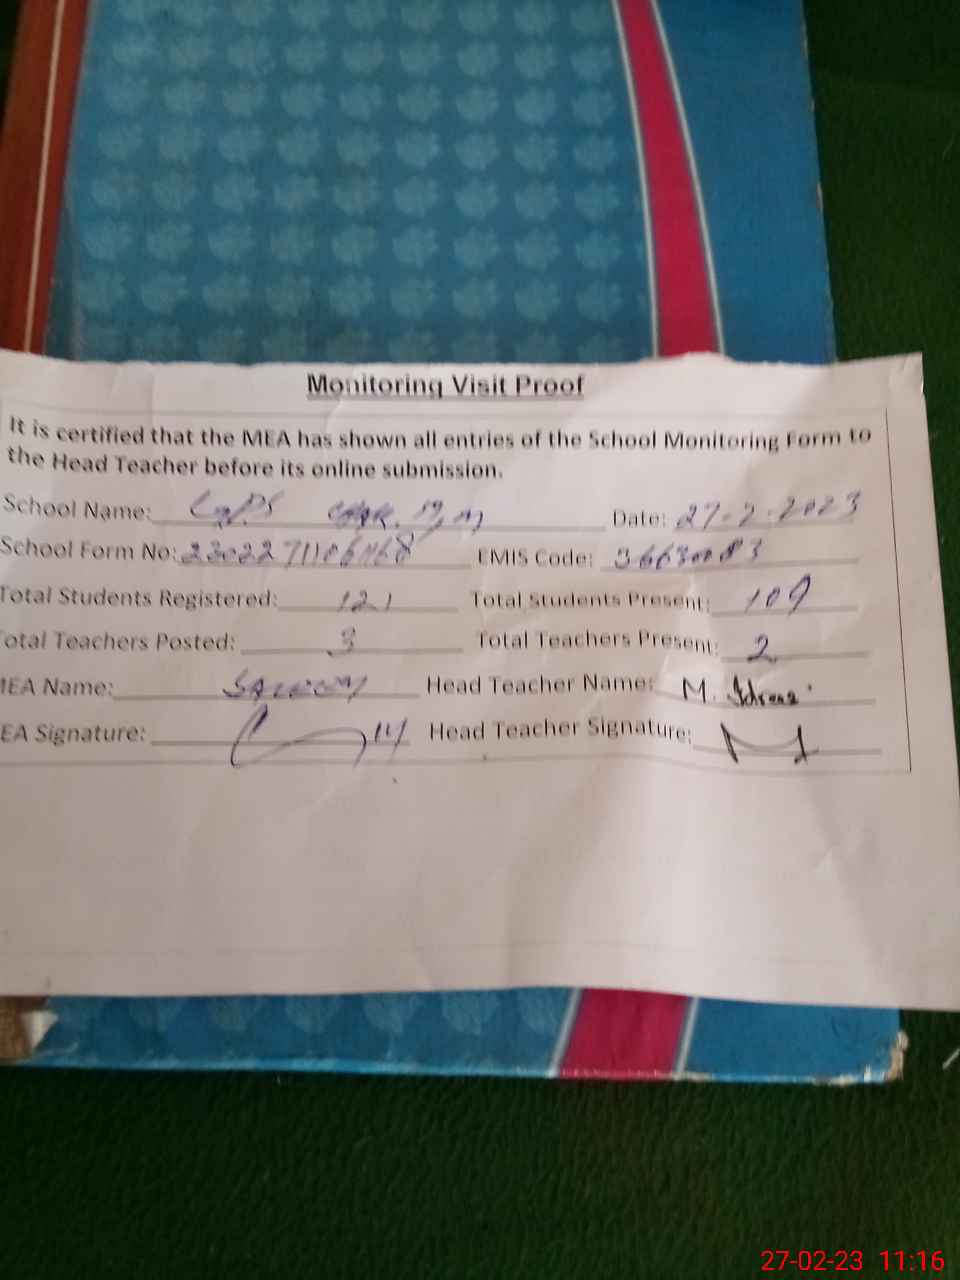 Monitoring Visit Proof
It is certified that the MEA has shown all entries of the School Monitoring Form to
the Head Teacher before its online submission.
School Name: GPS Date: 27-2-2023
School Form No: EMIS Code: 36630083
Total Students Registered: 121 Total Students Present: 109
otal Teachers Posted: 3 Total Teachers Present: 2
MEA Name: Head Teacher Name: M.
EA Signature: Head Teacher Signature:
27-02-23 11:16